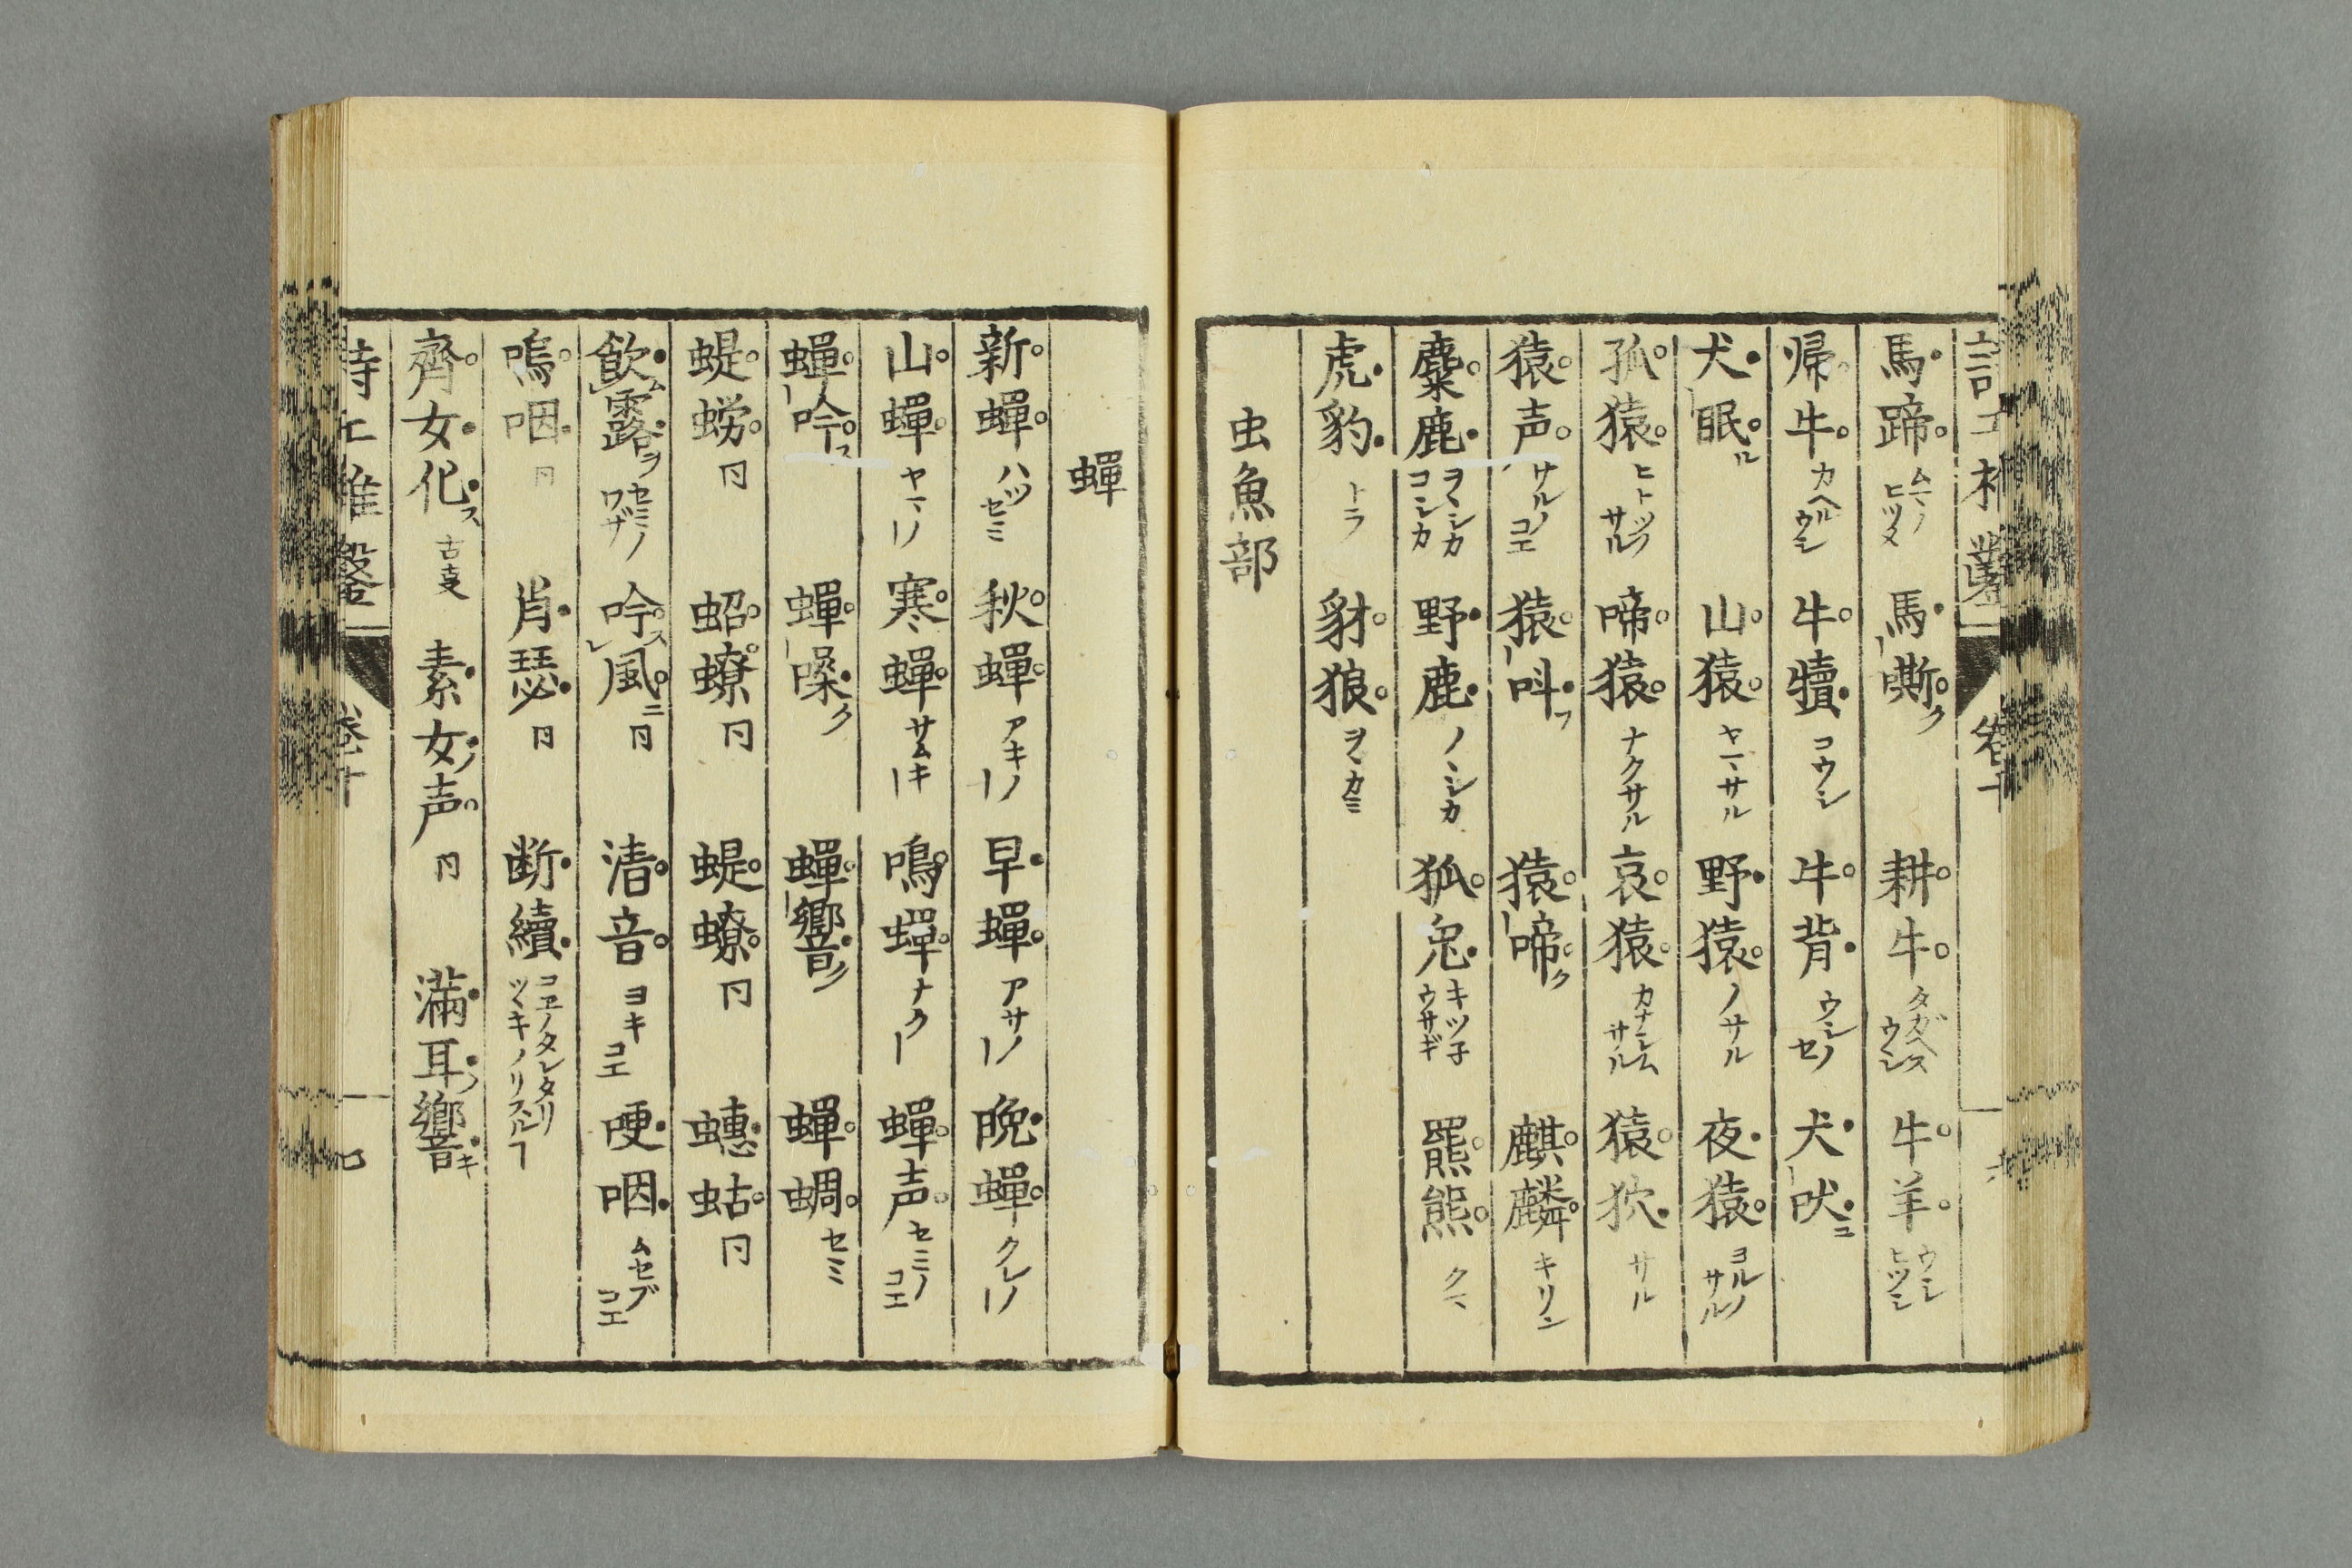 馬蹄 ムマノヒツメ 馬嘶ク 耕牛 タガヘスウシ 牛羊 ウシヒツシ
帰牛 カヘルウシ 牛犢 コウシ 牛背 ウシノセ 犬吠ユ
犬眠ル 山猿 ヤマサル 野猿 ノサル 夜猿 ヨルノサル
孤猿 ヒトツノサル 啼猿 ナクサル 哀猿 カナシムサル 猿狖 サル
猿声 サルノコエ 猿呌フ 猿啼ク 麒麟 キリン
麋鹿 ヲヽシカコシカ 野鹿 ノヽシカ 狐兔 キツ子ウサギ 羆熊 クマ
虎豹 トラ 豺狼 ヲヽカミ
虫魚部
蟬
新蟬 ハツセミ 秋蟬 アキノ〡 早蟬 アサノ〡 晩蟬 クレノ〡
山蟬 ヤマノ〡 寒蟬 サムキ〡 鳴蟬 ナク〡 蟬声 セミノコエ
蟬吟ス 蟬噪ク 蟬響ノ 蟬蜩 セミ
蝭蟧 冃 蛁蟟 冃 蝭蟟 冃 蟪蛄 冃
飲ム露ヲ セミノワザ 吟ス風ニ 冃 清音 ヨキコエ 哽咽 ムセブコエ
嗚咽 冃 肖瑟 冃 断續 コヱノタレタリツヽキノリスルヿ
齊女化ス 古事 素女ノ声 冃 滿耳ノ響キ